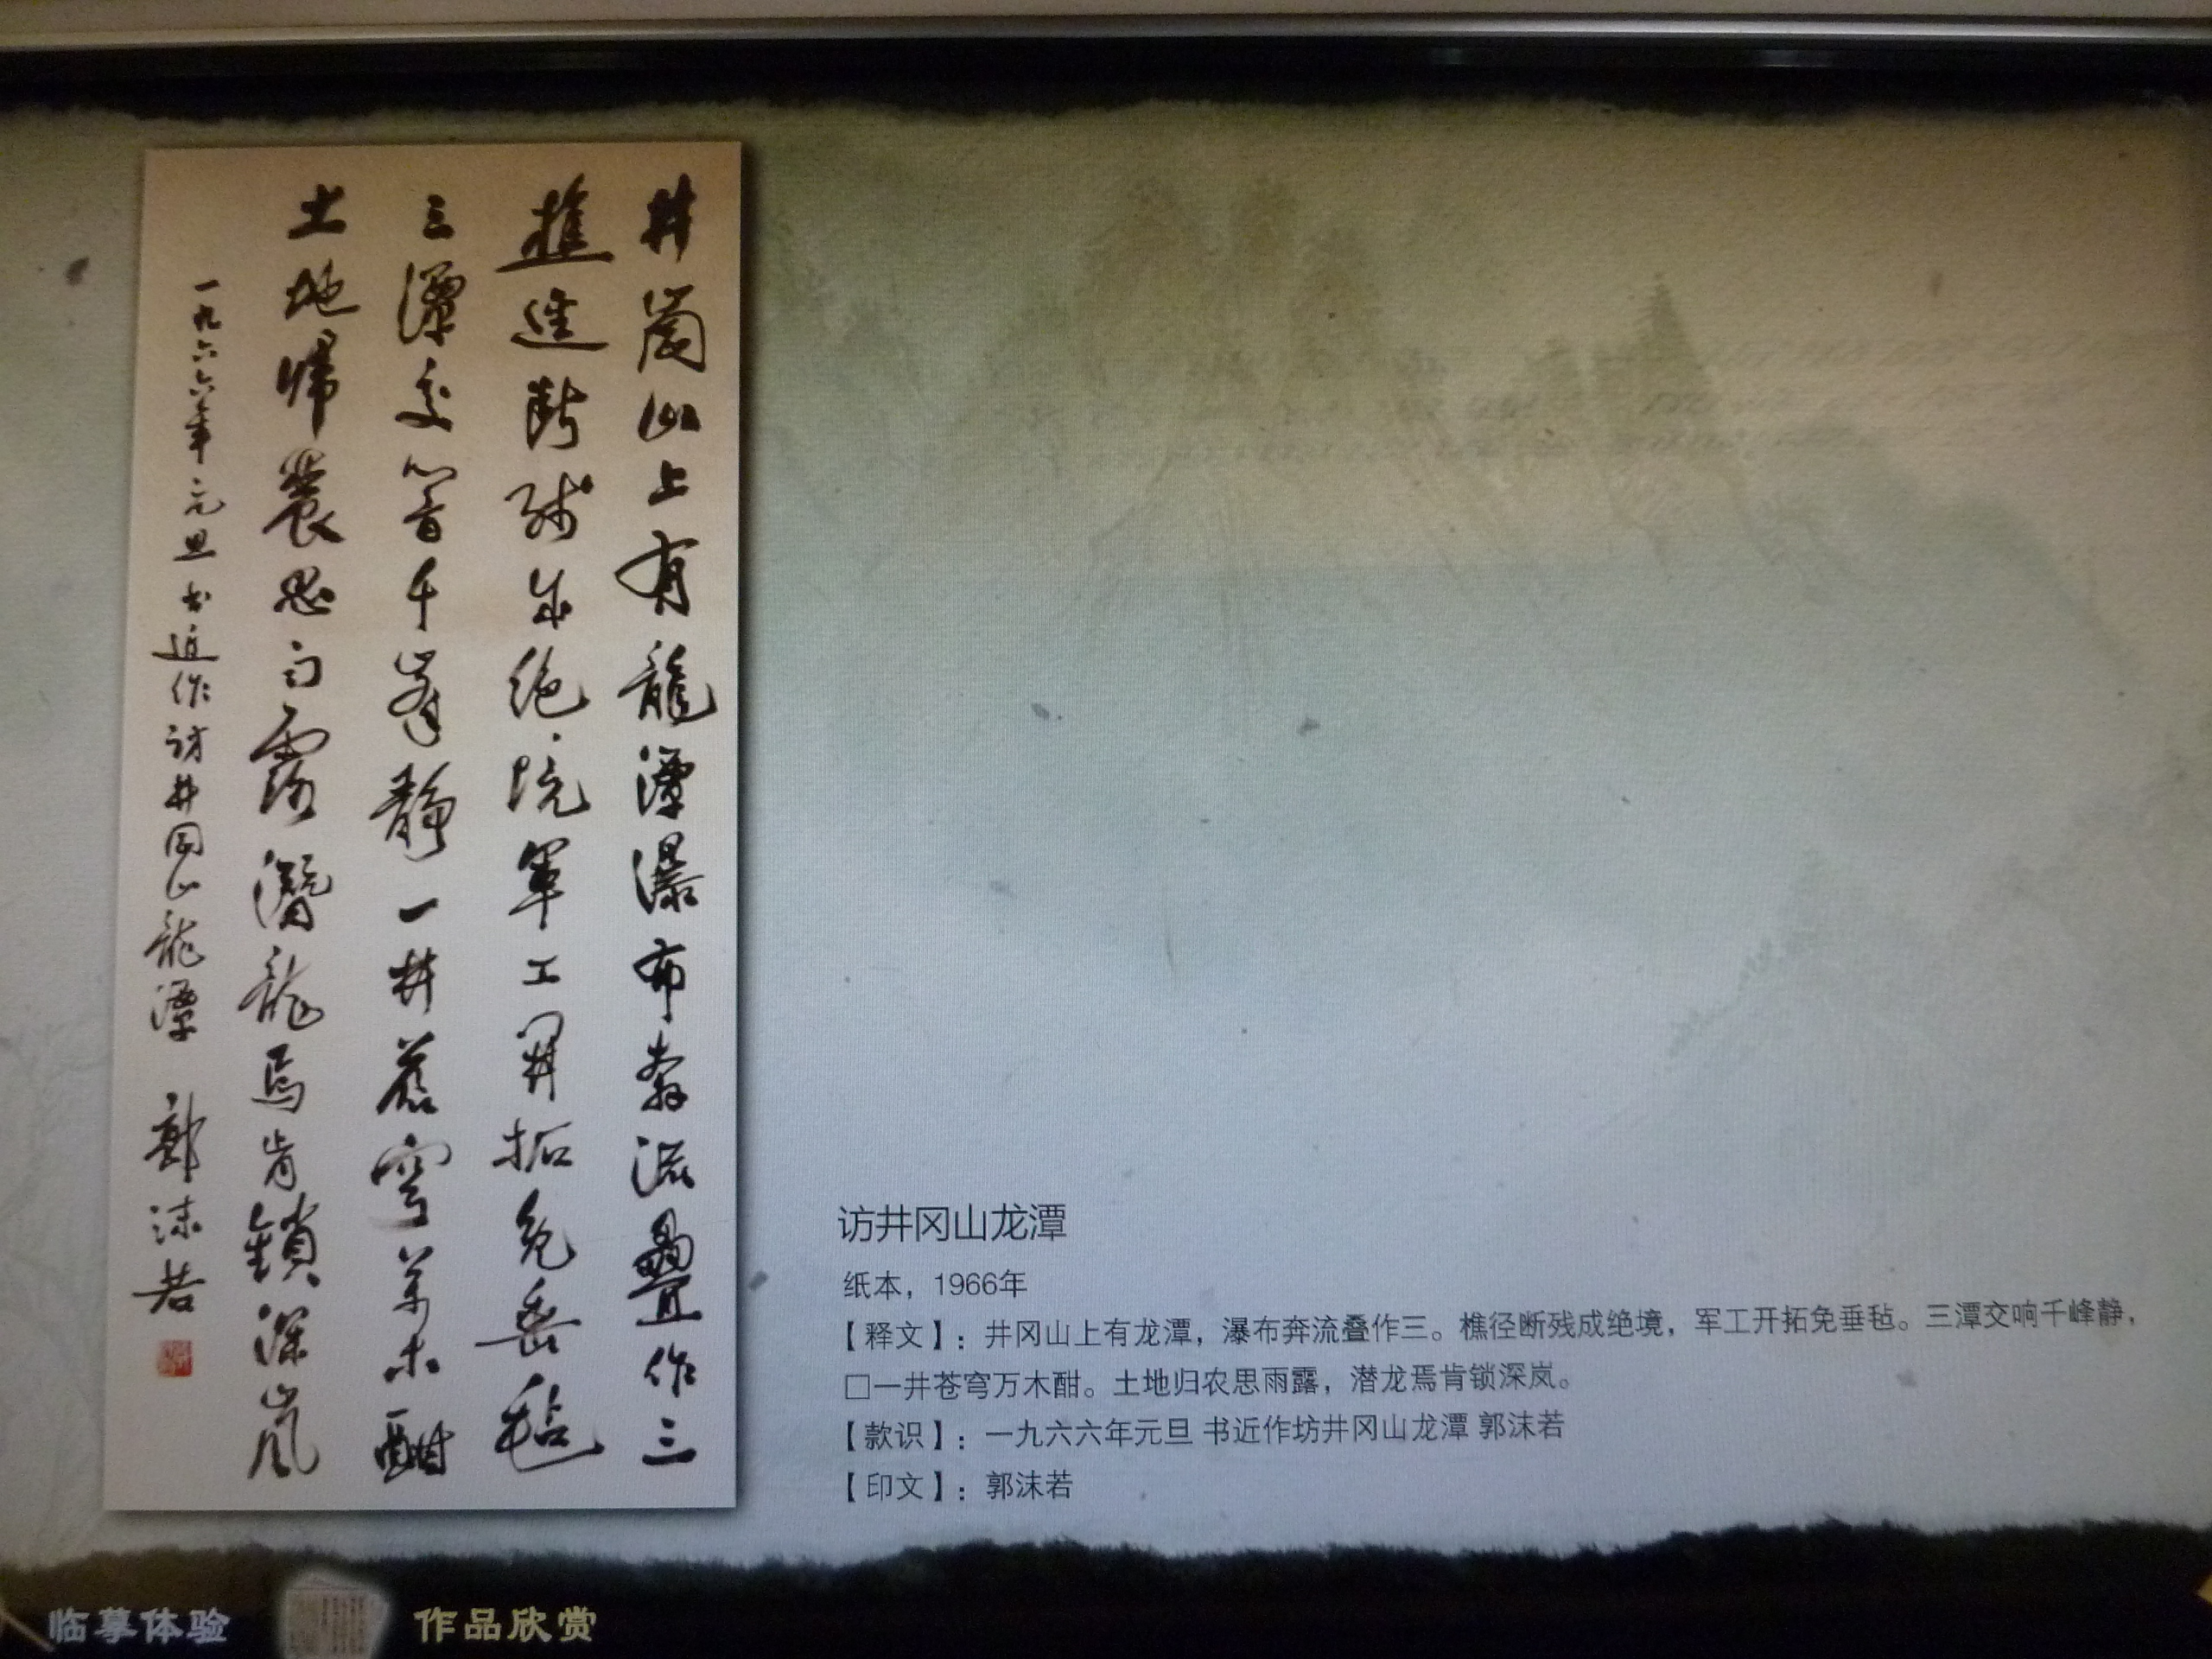 井崗山上有龍潭瀑布奔流疊作三
樵逕斷殘成絕境軍工開拓免垂毡
三潭交響千峯靜一井蒼穹萬木酣
土地歸農思雨露潛龍焉肯鎖深嵐
一九六六年元旦书近作訪井岡山龍潭 郭沫若
访井冈山龙潭
纸本，1966年
【释文】：井冈山上有龙潭，瀑布奔流叠作三。樵径断残成绝境，军工开拓免垂毡。三潭交响千峰静，
□一井苍穹万木酣。土地归农思雨露，潜龙焉肯锁深岚。
【款识】：一九六六年元旦 书近作坊井冈山龙潭 郭沫若
【印文】：郭沫若
临摹体验
作品欣赏